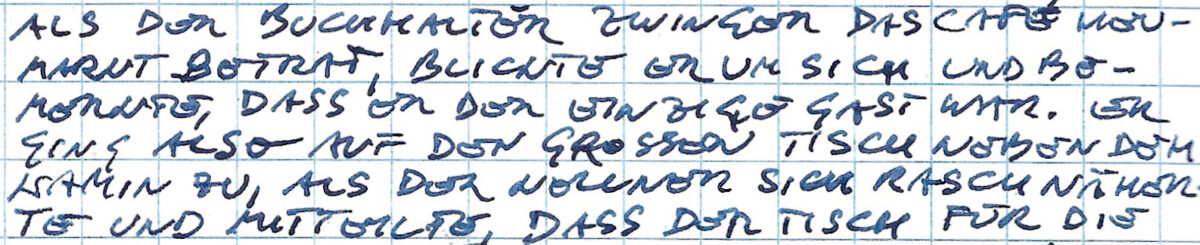 ALS DER BUCHHALTER ZWINGER DAS CAFÉ HEU-
MARKT BETRAT, BLICKTE ER UM SICH UND BE-
MERKTE, DASS ER DER EINZIGE GAST WAR. ER
GING ALSO AUF DEN GROSSEN TISCH NEBEN DEM
KAMIN ZU, ALS DER KELLNER SICH RASCH NÄHER-
TE UND MITTEILTE, DASS DER TISCH FÜR DIE